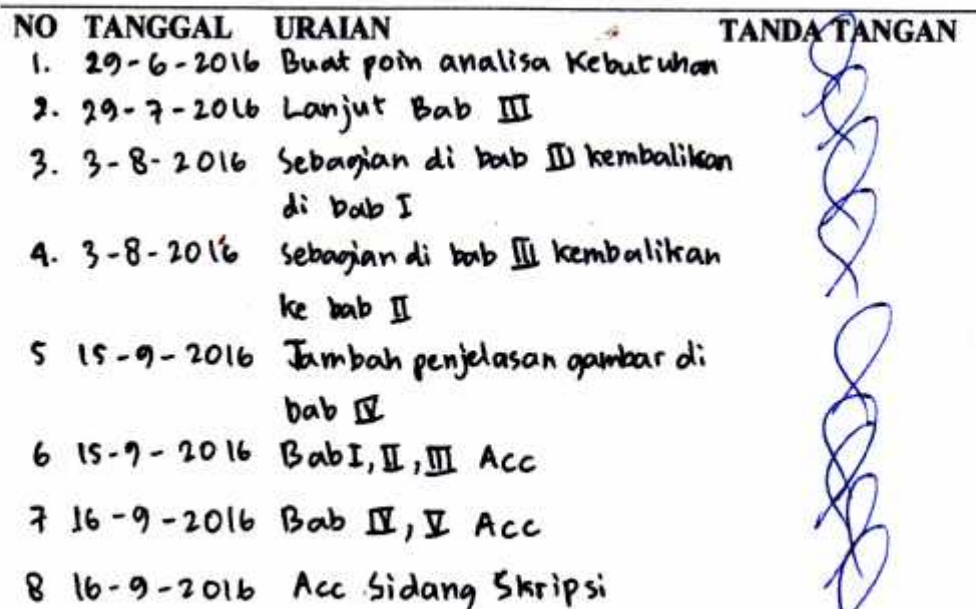 NO TANGGAL URAIAN TANDA TANGAN
1. 29-6-2016 Buat poin analisa Kebutuhan
2. 29-7-2016 Lanjut Bab III
3. 3-8-2016 Sebagian di bab II kembalikan
di bab I
4. 3-8-2016 Sebagian di bab III kembalikan
ke bab II
5 15-9-2016 Tambah penjelasan gambar di
bab IV
6 15-9-2016 Bab I, II, III Acc
7 16-9-2016 Bab IV, V Acc
8 16-9-2016 Acc Sidang Skripsi